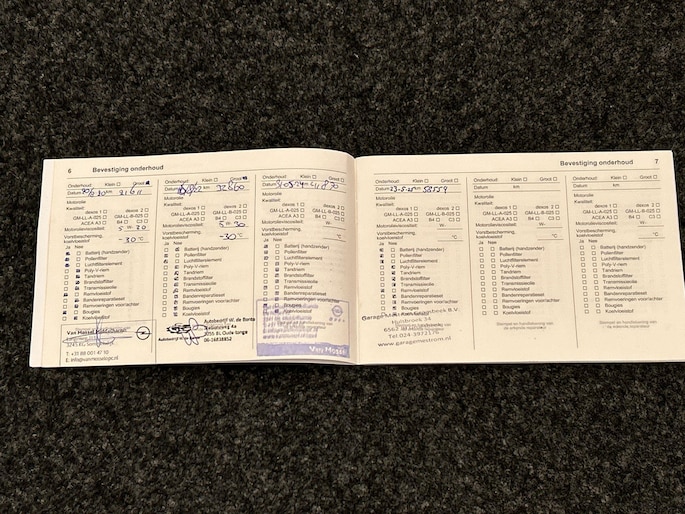 6 Bevestiging onderhoud
Onderhoud: Klein Groot
Datum km 21611
Motorolie
Kwaliteit:
dexos 1 dexos 2
GM-LL-A-025 GM-LL-B-025
ACEA A3 B4 C3
Motorolieviscositeit: 5 W- 30
Vorstbescherming,
koelvloeistof -30 °C
Ja Nee
Batterij (handzender)
Pollenfilter
Luchtfilterelement
Poly-V-riem
Tandriem
Brandstoffilter
Transmissieolie
Remvloeistof
Bandenreparatieset
Remvoeringen voor/achter
Bougies
Koelvloeistof
Van Mossel
T. +31 88 001 47 10
Onderhoud: Klein Groot
Datum km 32860
Motorolie
Kwaliteit:
dexos 1 dexos 2
GM-LL-A-025 GM-LL-B-025
ACEA A3 B4 C3
Motorolieviscositeit: 5 W- 30
Vorstbescherming,
koelvloeistof -30 °C
Ja Nee
Batterij (handzender)
Pollenfilter
Luchtfilterelement
Poly-V-riem
Tandriem
Brandstoffilter
Transmissieolie
Remvloeistof
Bandenreparatieset
Remvoeringen voor/achter
Bougies
Koelvloeistof
Autobedrijf W. de Borde
3255 BL Oude tonge
06-26838852
Onderhoud: Klein Groot
Datum km 41870
Motorolie
Kwaliteit:
dexos 1 dexos 2
GM-LL-A-025 GM-LL-B-025
ACEA A3 B4 C3
Motorolieviscositeit: W-
Vorstbescherming,
koelvloeistof °C
Ja Nee
Batterij (handzender)
Pollenfilter
Luchtfilterelement
Poly-V-riem
Tandriem
Brandstoffilter
Transmissieolie
Remvloeistof
Bandenreparatieset
Remvoeringen voor/achter
Bougies
Koelvloeistof
Van Mossel
Bevestiging onderhoud 7
Onderhoud: Klein Groot
Datum 23-5-25 km 58559
Motorolie
Kwaliteit:
dexos 1 dexos 2
GM-LL-A-025 GM-LL-B-025
ACEA A3 B4 C3
Motorolieviscositeit: W-
Vorstbescherming,
koelvloeistof °C
Ja Nee
Batterij (handzender)
Pollenfilter
Luchtfilterelement
Poly-V-riem
Tandriem
Brandstoffilter
Transmissieolie
Remvloeistof
Bandenreparatieset
Remvoeringen voor/achter
Bougies
Koelvloeistof
Garage B.V.
Hulsbroek 34
Tel 024 3972176
www.garagemaxtrom.nl
Onderhoud: Klein Groot
Datum km
Motorolie
Kwaliteit:
dexos 1 dexos 2
GM-LL-A-025 GM-LL-B-025
ACEA A3 B4 C3
Motorolieviscositeit: W-
Vorstbescherming,
koelvloeistof °C
Ja Nee
Batterij (handzender)
Pollenfilter
Luchtfilterelement
Poly-V-riem
Tandriem
Brandstoffilter
Transmissieolie
Remvloeistof
Bandenreparatieset
Remvoeringen voor/achter
Bougies
Koelvloeistof
Stempel en handtekening van
de erkende reparateur
Onderhoud: Klein Groot
Datum km
Motorolie
Kwaliteit:
dexos 1 dexos 2
GM-LL-A-025 GM-LL-B-025
ACEA A3 B4 C3
Motorolieviscositeit: W-
Vorstbescherming,
koelvloeistof °C
Ja Nee
Batterij (handzender)
Pollenfilter
Luchtfilterelement
Poly-V-riem
Tandriem
Brandstoffilter
Transmissieolie
Remvloeistof
Bandenreparatieset
Remvoeringen voor/achter
Bougies
Koelvloeistof
Stempel en handtekening van
de erkende reparateur